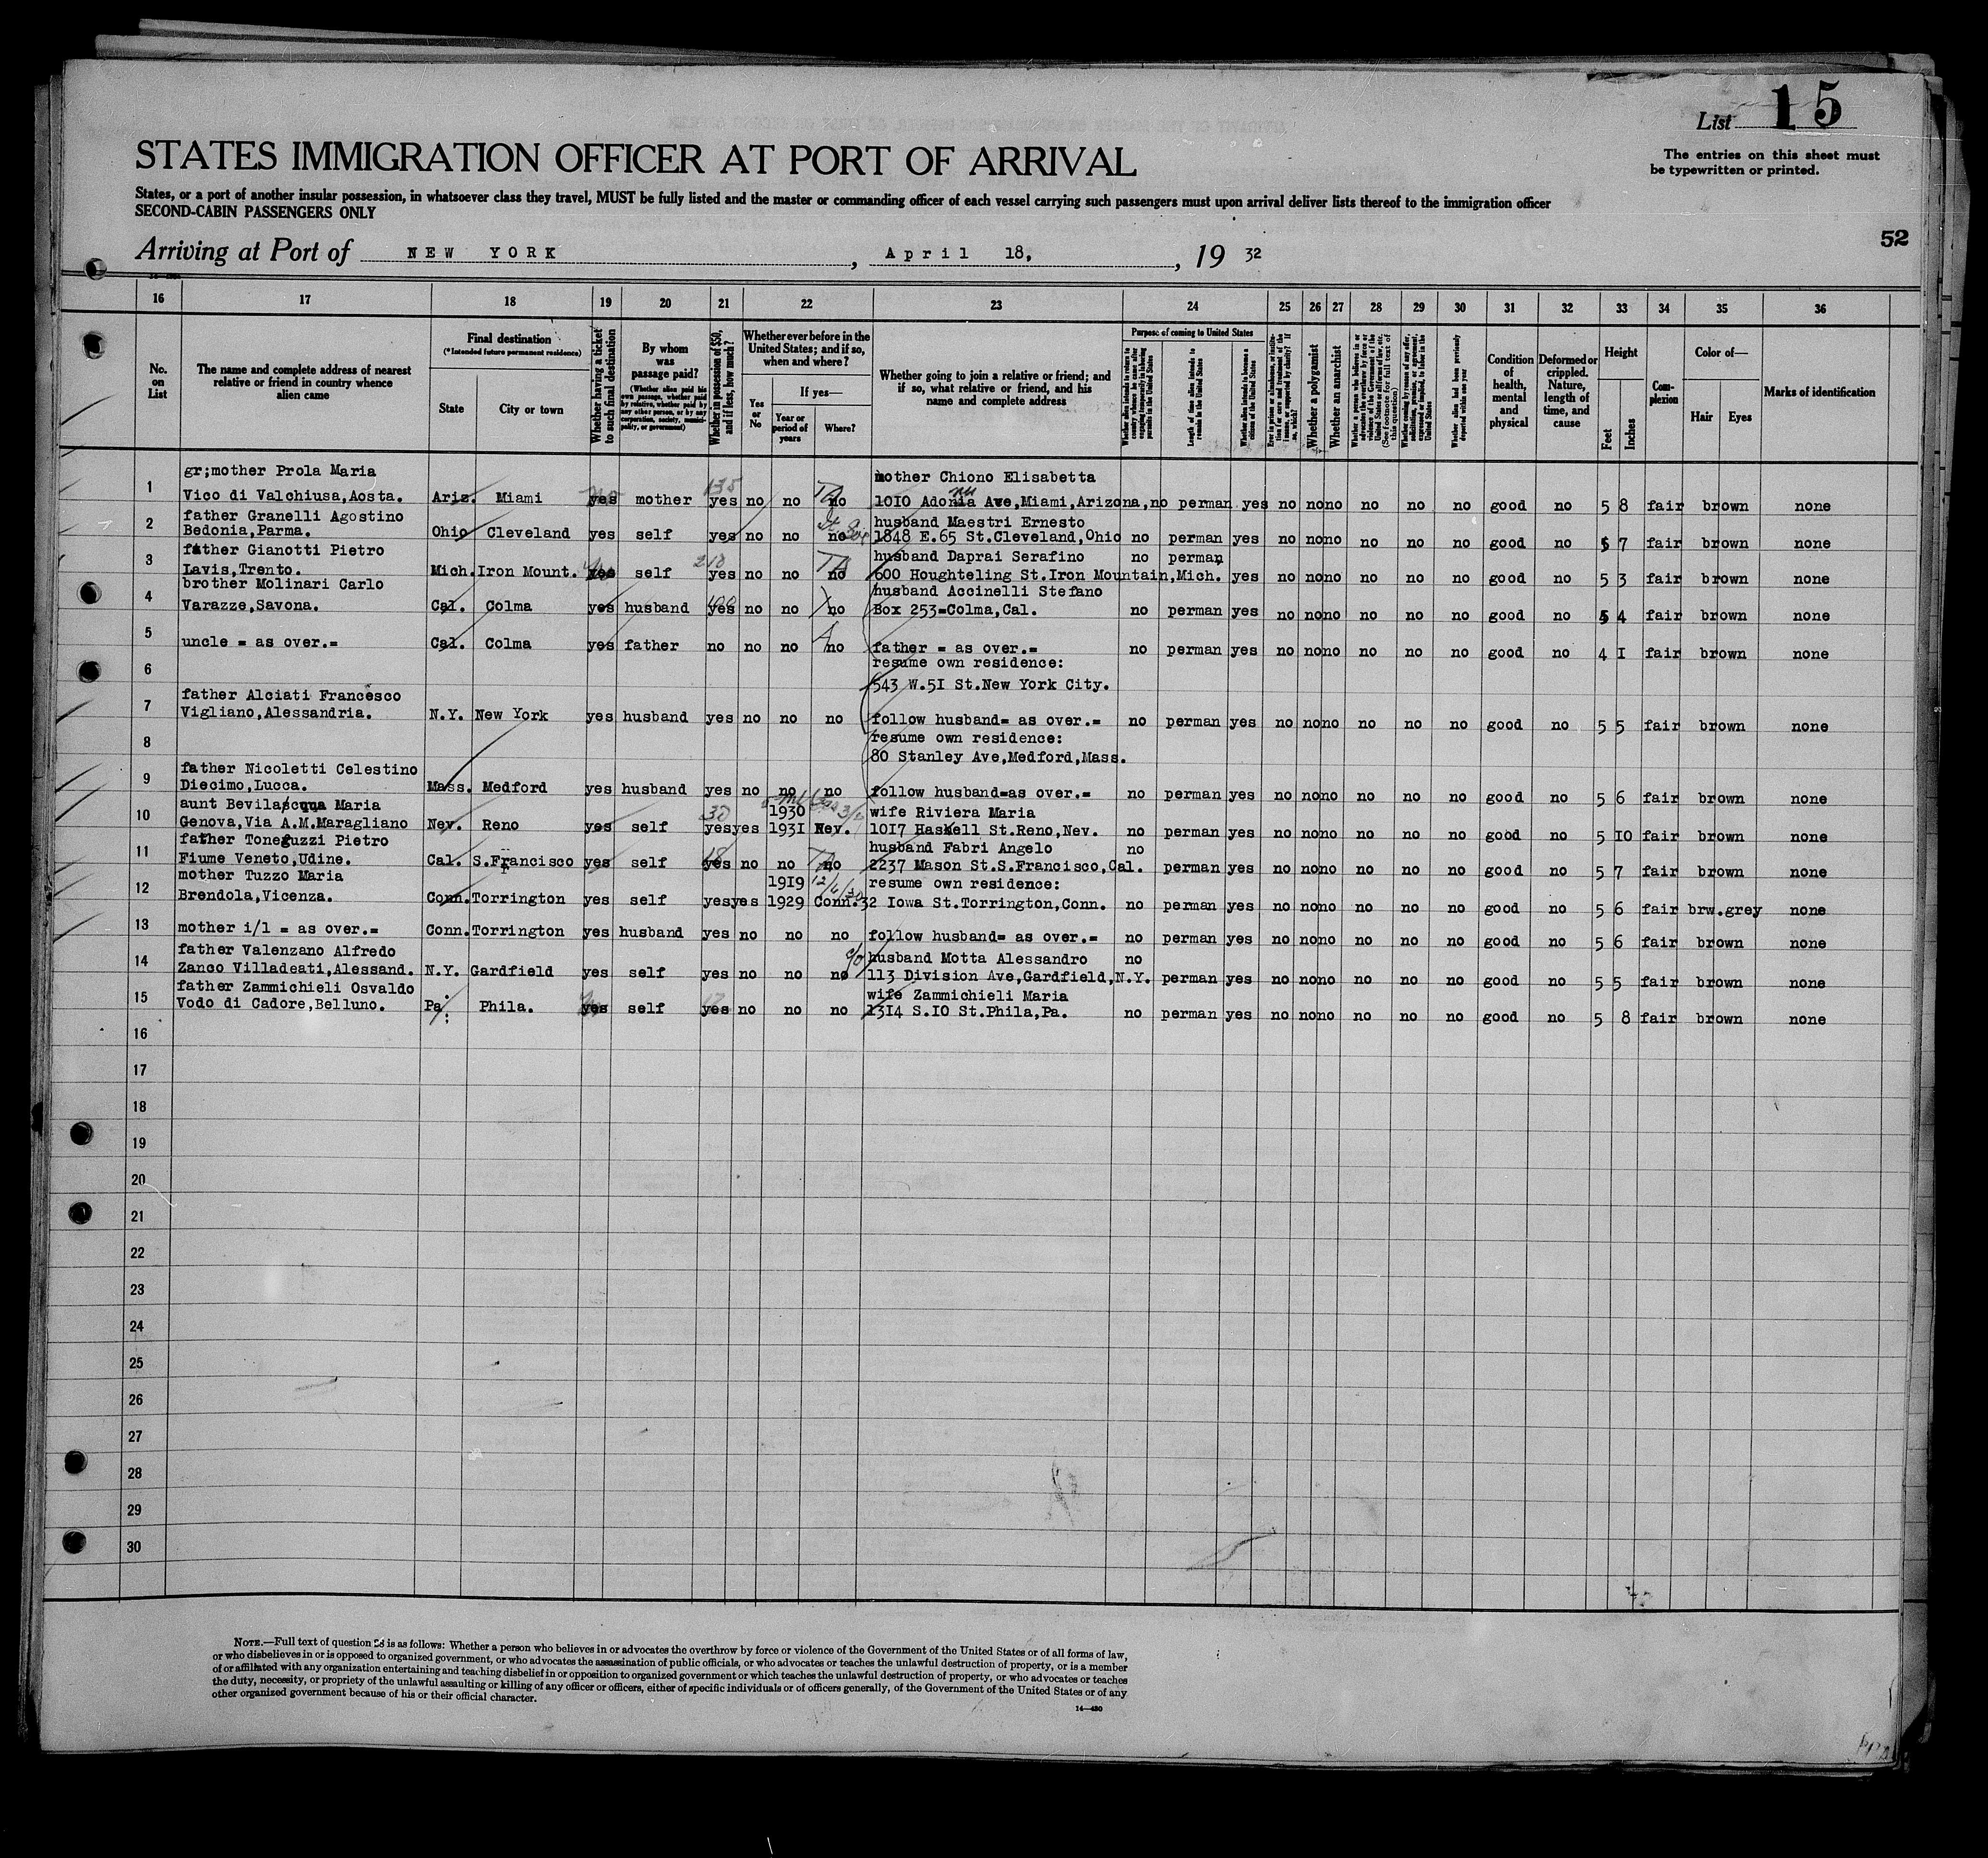 List 15
STATES IMMIGRATION OFFICER AT PORT OF ARRIVAL
The entries on this sheet must
be typewritten or printed.
States, or a port of another insular possession, in whatsoever class they travel, MUST be fully listed and the master or commanding officer of each vessel carrying such passengers must upon arrival deliver lists thereof to the immigration officer
SECOND-CABIN PASSENGERS ONLY
52
Arriving at Port of NEW YORK, April 18, 19 32
16 17 18 19 20 21 22 23 24 25 26 27 28 29 30 31 32 33 34 35 36
No. on List
The name and complete address of nearest relative or friend in country whence alien came
Final destination
(*Intended future permanent residence)
State
City or town
Whether having a ticket to such final destination
By whom was passage paid?
(Whether alien paid his own passage, whether paid by relative, whether paid by any other person, or by any corporation, society, municipality, or government)
Whether in possession of $50, and if less, how much?
Whether ever before in the United States; and if so, when and where?
Yes or No
If yes—
Year or period of years
Where?
Whether going to join a relative or friend; and if so, what relative or friend, and his name and complete address
Purpose of coming to United States
Whether alien intends to return to country whence he came after engaging temporarily in laboring pursuits in the United States
Length of time alien intends to remain in the United States
Whether alien intends to become a citizen of the United States
Ever in prison or almshouse, or institution for care and treatment of the insane, or supported by charity? If so, which?
Whether a polygamist
Whether an anarchist
Whether a person who believes in or advocates the overthrow by force or violence of the Government of the United States or all forms of law, etc. (See footnote for full text of this question)
Whether coming by reason of any offer, solicitation, promise, or agreement, expressed or implied, to labor in the United States
Whether alien had been previously deported within one year
Condition of health, mental and physical
Deformed or crippled. Nature, length of time, and cause
Height
Feet
Inches
Complexion
Color of—
Hair
Eyes
Marks of identification
gr;mother Prola Maria mother Chiono Elisabetta
1 Vico di Valchiusa,Aosta. Ariz. Miami yes mother 135 yes no no no 1010 Adonia Ave,Miami,Arizona, no perman yes no no no no no no good no 5 8 fair brown none
father Granelli Agostino husband Maestri Ernesto
2 Bedonia,Parma. Ohio Cleveland yes self yes no no no 1848 E.65 St.Cleveland,Ohio no perman yes no no no no no no good no 5 7 fair brown none
father Gianotti Pietro husband Daprai Serafino no perman
3 Lavis,Trento. Mich. Iron Mount. yes self 210 yes no no no 600 Houghteling St.Iron Mountain,Mich. yes no no no no no no good no 5 3 fair brown none
brother Molinari Carlo husband Accinelli Stefano
4 Varazze,Savona. Cal. Colma yes husband yes no no no Box 253=Colma,Cal. no perman yes no no no no no no good no 5 4 fair brown none
5 uncle = as over.= Cal. Colma yes father no no no no father = as over.= no perman yes no no no no no no good no 4 1 fair brown none
resume own residence:
6 543 W.51 St.New York City.
father Alciati Francesco
7 Vigliano,Alessandria. N.Y. New York yes husband yes no no no follow husband= as over.= no perman yes no no no no no no good no 5 5 fair brown none
resume own residence:
8 80 Stanley Ave,Medford,Mass.
father Nicoletti Celestino
9 Diecimo,Lucca. Mass. Medford yes husband yes no no no follow husband=as over.= no perman yes no no no no no no good no 5 6 fair brown none
aunt Bevilacqua Maria 1930 wife Riviera Maria
10 Genova,Via A.M.Maragliano Nev. Reno yes self 30 yes yes 1931 Nev. 1017 Haskell St.Reno,Nev. no perman yes no no no no no no good no 5 10 fair brown none
father Toneguzzi Pietro husband Fabri Angelo no
11 Fiume Veneto,Udine. Cal. S.Francisco yes self yes no no no 2237 Mason St.S.Francisco,Cal. perman yes no no no no no no good no 5 7 fair brown none
mother Tuzzo Maria 1919 resume own residence:
12 Brendola,Vicenza. Conn. Torrington yes self yes yes 1929 Conn. 32 Iowa St.Torrington,Conn. no perman yes no no no no no no good no 5 6 fair brw.grey none
13 mother i/l = as over.= Conn. Torrington yes husband yes no no no follow husband= as over.= no perman yes no no no no no no good no 5 6 fair brown none
father Valenzano Alfredo c/o husband Motta Alessandro no
14 Zanco Villadeati,Alessand. N.Y. Gardfield yes self yes no no no 113 Division Ave,Gardfield,N.Y. perman yes no no no no no no good no 5 5 fair brown none
father Zammichieli Osvaldo wife Zammichieli Maria
15 Vodo di Cadore,Belluno. Pa. Phila. yes self yes no no no 1314 S.10 St.Phila,Pa. no perman yes no no no no no no good no 5 8 fair brown none
16
17
18
19
20
21
22
23
24
25
26
27
28
29
30
NOTE.—Full text of question 28 is as follows: Whether a person who believes in or advocates the overthrow by force or violence of the Government of the United States or of all forms of law,
or who disbelieves in or is opposed to organized government, or who advocates the assassination of public officials, or who advocates or teaches the unlawful destruction of property, or is a member
of or affiliated with any organization entertaining and teaching disbelief in or opposition to organized government or which teaches the unlawful destruction of property, or who advocates or teaches
the duty, necessity, or propriety of the unlawful assaulting or killing of any officer or officers, either of specific individuals or of officers generally, of the Government of the United States or of any
other organized government because of his or their official character.
14—430